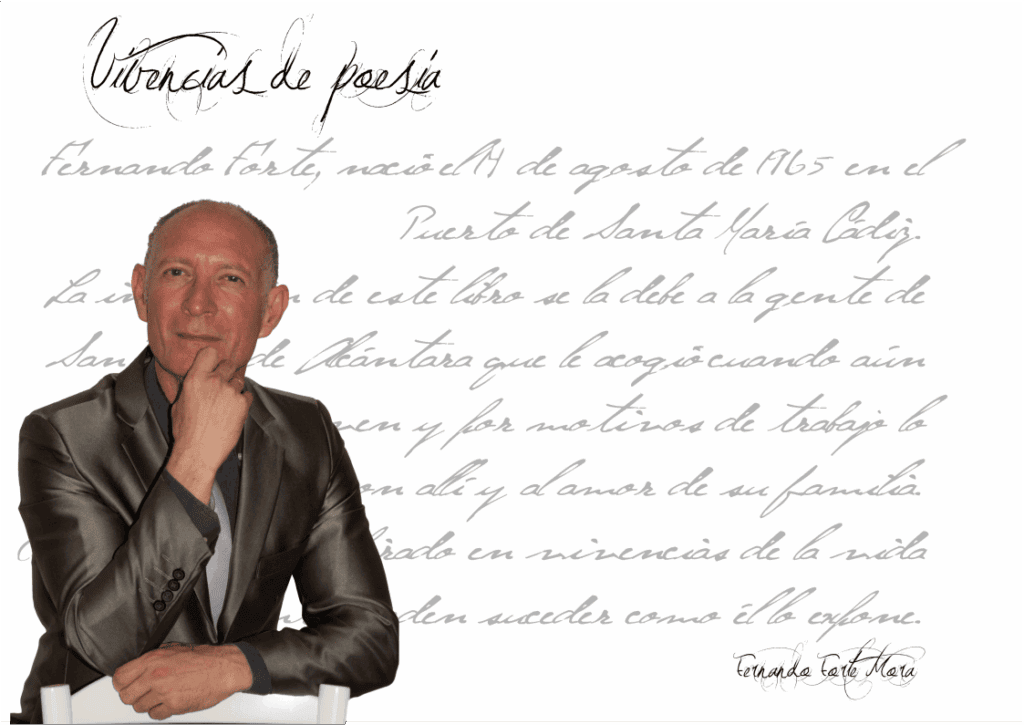 Vivencias de poesía
Fernando Forte, nació el 14 de agosto de 1965 en el
Puerto de Santa María Cádiz.
La in n de este libro se la debe a la gente de
San de Alcántara que le acogió cuando aún
ven y por motivos de trabajo lo
on allí y al amor de su familia.
irado en vivencias de la vida
den suceder como él lo expone.
Fernando Forte Mora